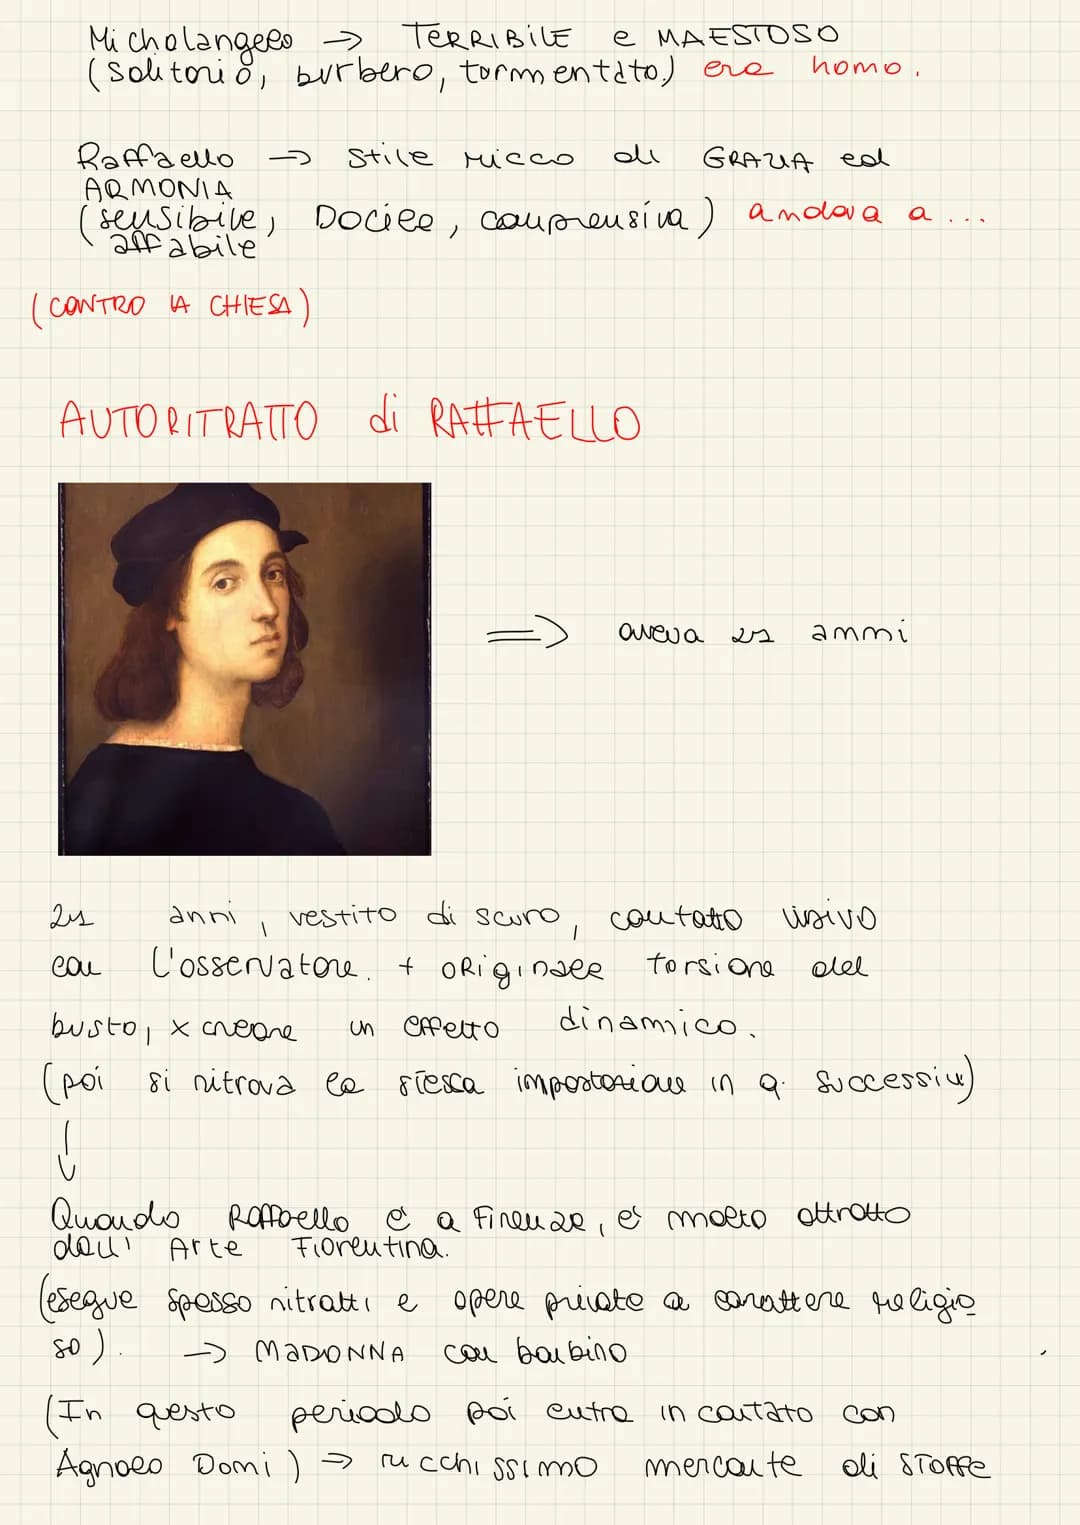 Micholangelo → TERRIBILE e MAESTOSO
(solitorio, burbero, tormentato) era homo.
Raffaello → stile ricco di GRAZIA ed
ARMONIA
(sensibile, Docile, comprensiva) andava a ...
affabile
(CONTRO LA CHIESA)
AUTORITRATTO di RAFFAELLO
⇒ aveva 21 anni
21 anni, vestito di scuro, contatto visivo
con l'osservatore. + originale torsione del
busto, x creare un effetto dinamico.
(poi si ritrova la stessa impostazione in q. successivi)
↓
Quando Raffaello è a Firenze, è molto attratto
dall' Arte Fiorentina.
(esegue spesso ritratti e opere private a carattere religio
so). → MADONNA con bambino
(In questo periodo poi entra in contatto con
Agnolo Doni) → ricchissimo mercante di STOFFE